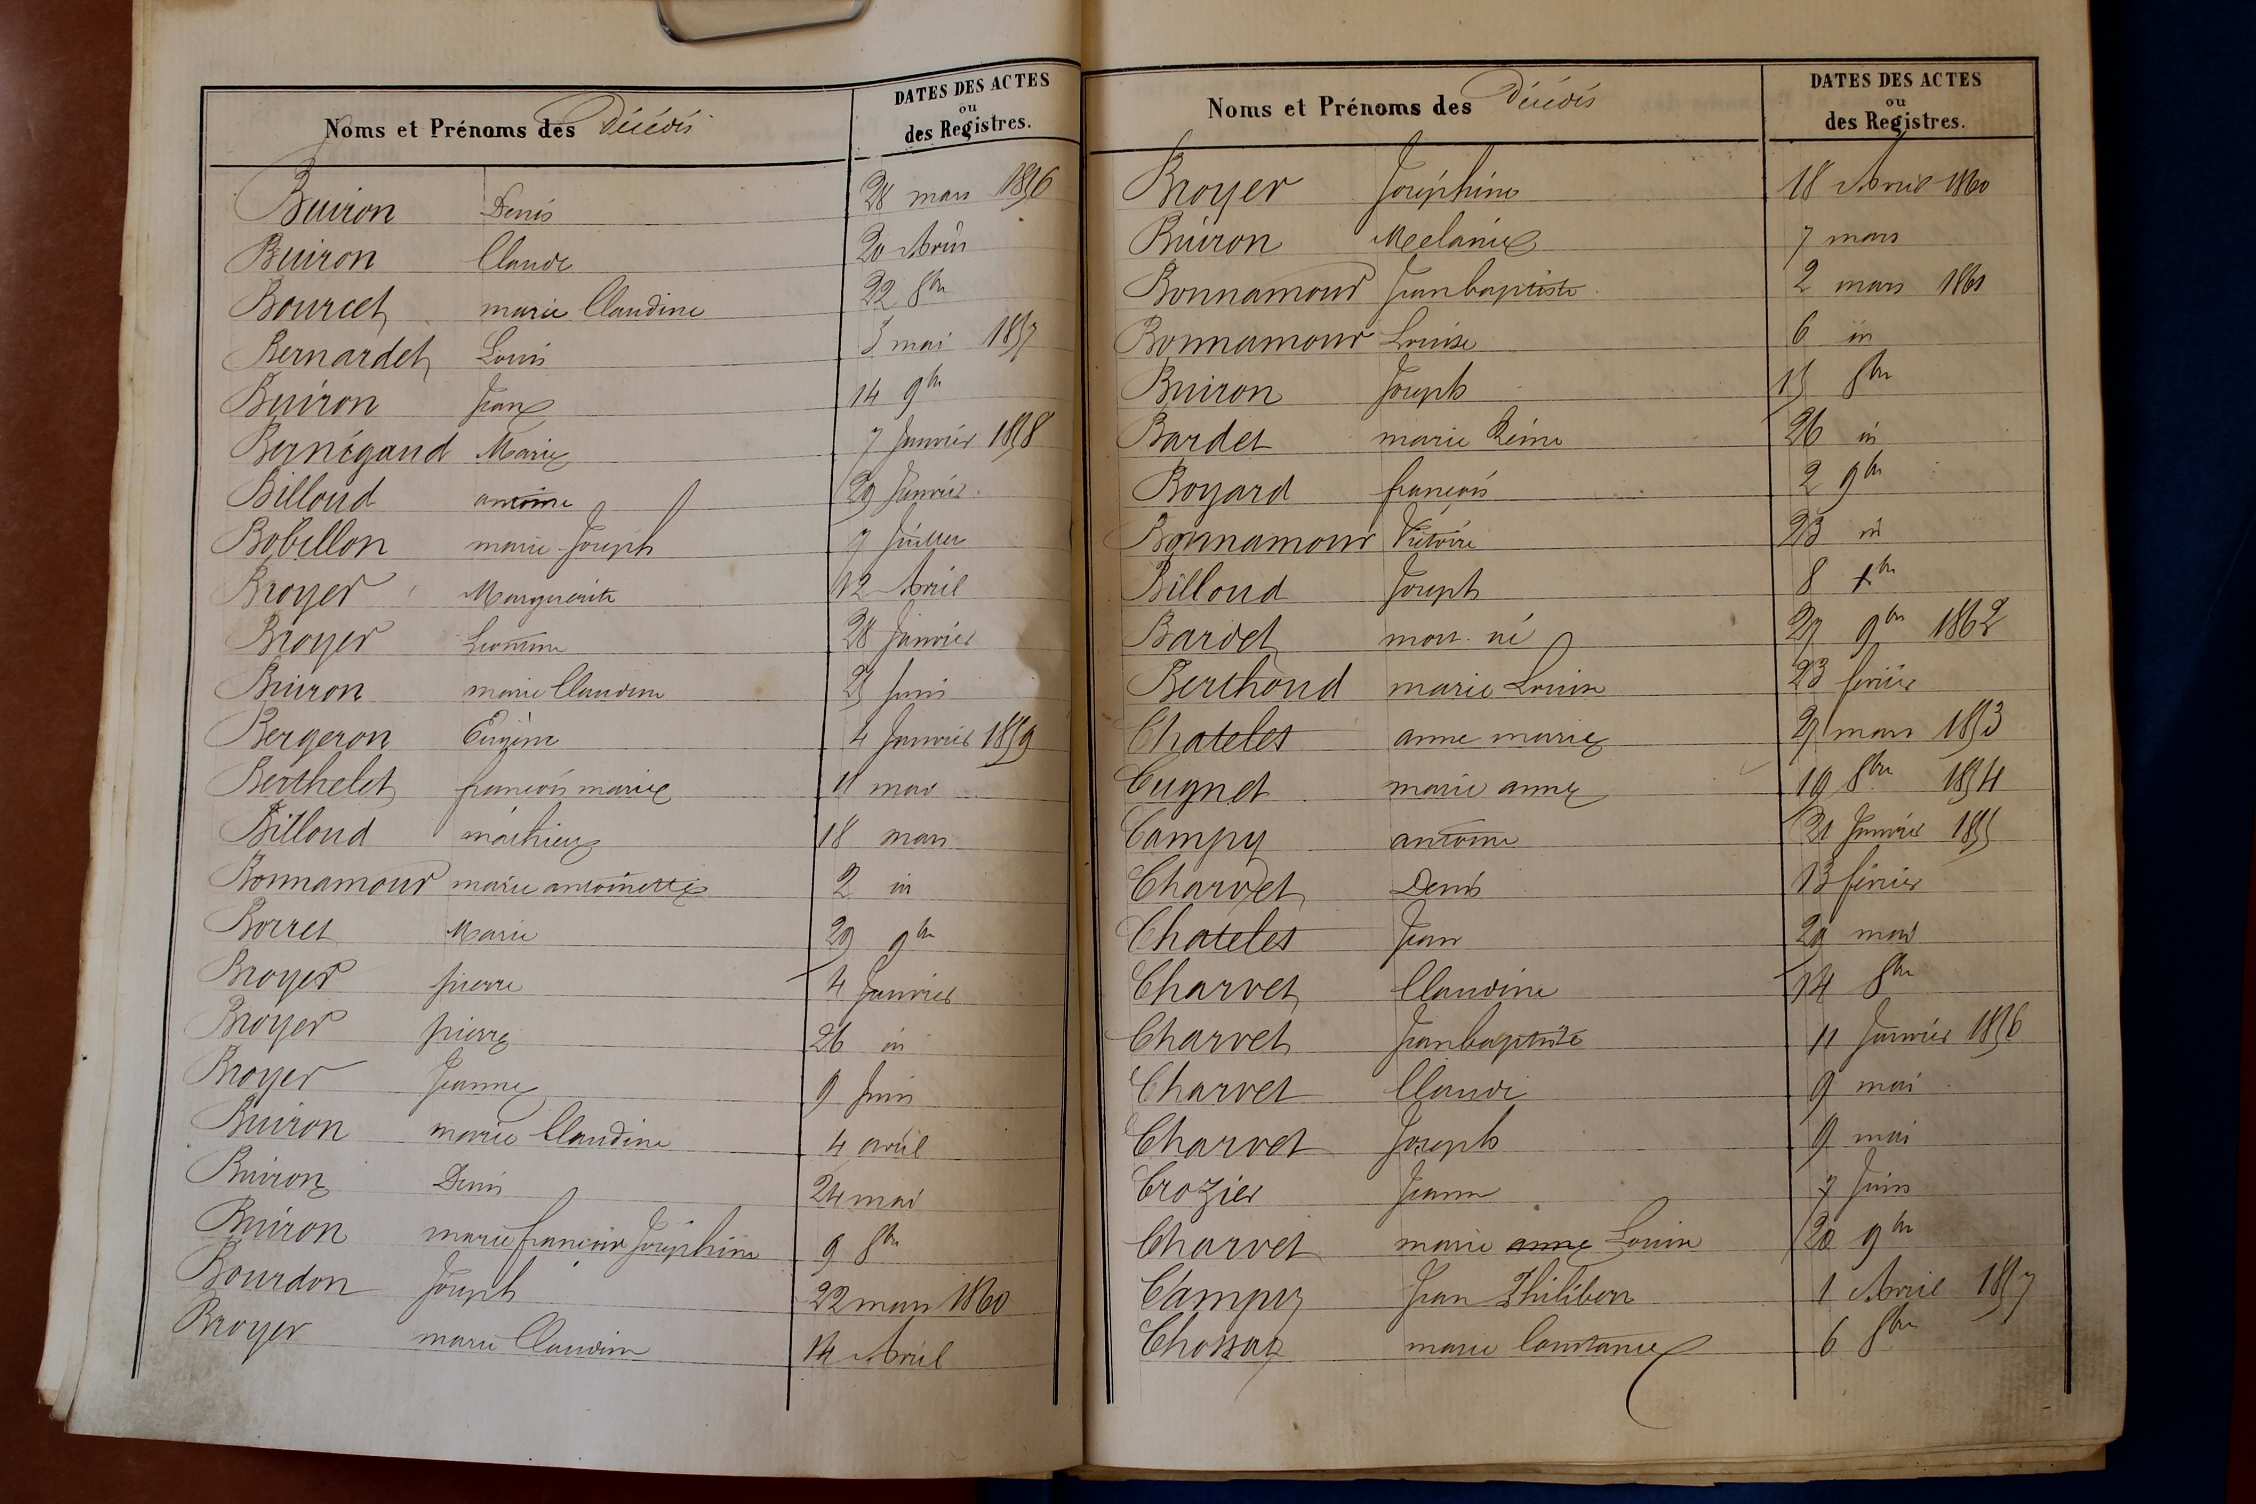 Noms et Prénoms des Décédés
DATES DES ACTES
ou
des Registres.
Buiron Denis 28 mars 1856
Buiron Claude 20 Août
Bourcet marie Claudine 22 8bre
Bernardet Louis 5 mai 1857
Buiron Jean 14 9bre
Bernégaud Marie 7 Janvier 1858
Billoud antoine 29 Janvier
Bobillon marie Joseph 7 Juillet
Broyer Marguerite 12 Avril
Broyer 28 Janvier
Buiron marie Claudine 25 Juin
Bergeron Eugène 4 Janvier 1859
Berthelet françois marie 11 mai
Billoud mathieu 18 mars
Bonnamour marie antoinette 2 in
Borret Marie 29 9bre
Broyer pierre 4 Janvier
Broyer pierre 26 in
Broyer Jeanne 9 Juin
Buiron marie Claudine 4 avril
Buiron Denis 24 mai
Buiron marie françoise Joséphine 9 8bre
Bourdon Joseph 22 mars 1860
Broyer marie Claudine 14 Avril
Noms et Prénoms des Décédés
DATES DES ACTES
ou
des Registres.
Broyer Joséphine 18 Avril 1860
Buiron Melanie 7 mars
Bonnamour Jean baptiste 2 mars 1861
Bonnamour Louise 6 in
Buiron Joseph 15 8bre
Bardet marie Reine 26 in
Boyard françois 2 9bre
Bonnamour Victoire 23 in
Billoud Joseph 8 xbre
Bardet mort né 27 9bre 1862
Berthoud marie Louise 23 février
Chatelet anne marie 27 mars 1853
Cugnet marie anne 19 8bre 1854
Campy antoine 21 Janvier 1855
Charvet Denis 13 février
Chatelet Jean 29 mai
Charvet Claudine 14 8bre
Charvet Jean baptiste 11 Janvier 1856
Charvet Claude 9 mai
Charvet Joseph 9 mai
Crozier Jeanne 7 Juin
Charvet marie anne Louise 20 9bre
Campy Jean Philibert 1 Avril 1857
Chossat marie Constance 6 8bre